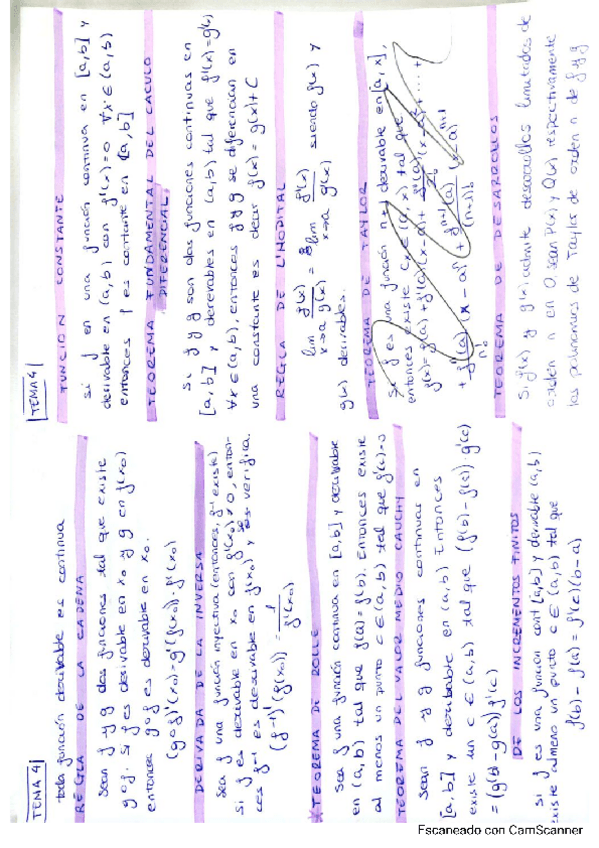 TEMA 4
toda función derivable es continua
REGLA DE LA CADENA
Sean f y g dos funciones tal que existe
g∘f. Si f es derivable en x₀ y g en f(x₀)
entonces g∘f es derivable en x₀.
(g∘f)'(x₀) = g'(f(x₀))·f'(x₀)
DERIVADA DE LA INVERSA
Sea f una función inyectiva (entonces, f⁻¹ existe)
si f es derivable en x₀ con f'(x₀) ≠ 0, enton-
ces f⁻¹ es derivable en f(x₀) y se verifica.
(f⁻¹)'(f(x₀)) = 1/f'(x₀)
TEOREMA DE ROLLE
Sea f una función continua en [a,b] y derivable
en (a,b) tal que f(a)=f(b). Entonces existe
al menos un punto c∈(a,b) tal que f'(c)=0
TEOREMA DEL VALOR MEDIO CAUCHY
Sean f y g funciones continuas en
[a,b] y derivable en (a,b) Entonces
existe un c∈(a,b) tal que (f(b)-f(a))·g'(c)
= (g(b)-g(a))f'(c)
DE LOS INCREMENTOS FINITOS
si f es una función cont [a,b] y derivable (a,b)
existe almeno un punto c∈(a,b) tal que
f(b)-f(a) = f'(c)(b-a)
TEMA 4
FUNCION CONSTANTE
si f en una función continua en [a,b] y
derivable en (a,b) con f'(x)=0 ∀x∈(a,b)
entonces f es contante en [a,b]
TEOREMA FUNDAMENTAL DEL CACULO
DIFERENCIAL
Si f y g son dos funciones continuas en
[a,b] y derevables en (a,b) tal que f'(x)=g'(x)
∀x∈(a,b), entonces f y g se diferencian en
una constante es decir f(x) = g(x)+C
REGLA DE L'HOPITAL
lim x→a f(x)/g(x) = lim x→a f'(x)/g'(x) siendo f(x) y
g(x) derivables.
TEOREMA DE TAYLOR
Si f es una función n derivable en [a,x],
entonces existe Cx∈(a,x) tal que
f(x)=f(a)+f'(a)(x-a)+ f''(a)/2! (x-a)²+...+
(x-a)ⁿ
TEOREMA DE DESARROLLOS
Si f(x) y g(x) admite desarrollos limitados de
orden n en 0, sean P(x) y Q(x) respectivamente
los polinomios de Taylor de orden n de f y g
Escaneado con CamScanner